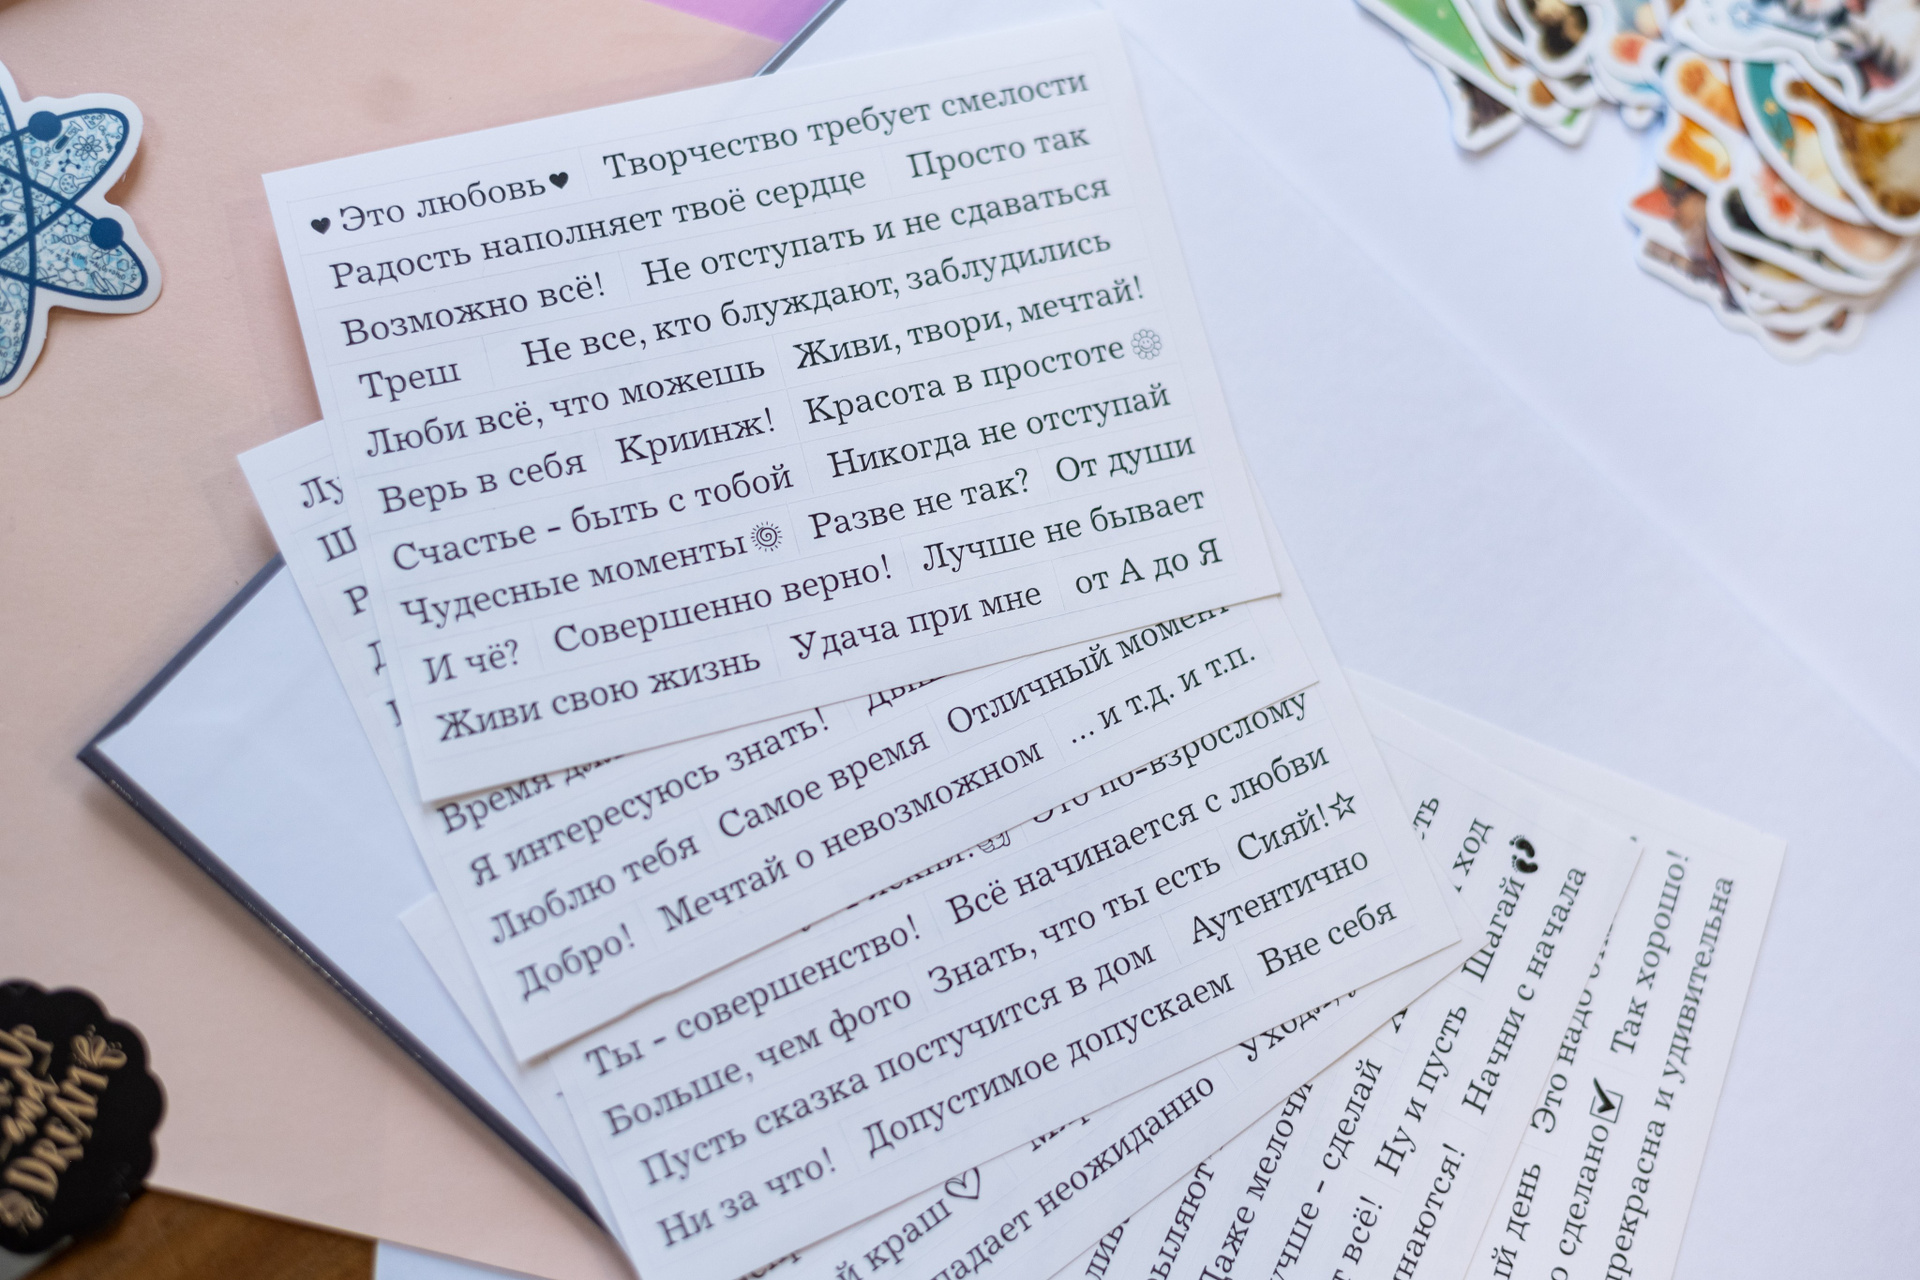 ♥Это любовь♥ Творчество требует смелости
Радость наполняет твоё сердце Просто так
Возможно всё! Не отступать и не сдаваться
Треш Не все, кто блуждают, заблудились
Люби всё, что можешь Живи, твори, мечтай!
Верь в себя Криинж! Красота в простоте
Счастье - быть с тобой Никогда не отступай
Чудесные моменты Разве не так? От души
И чё? Совершенно верно! Лучше не бывает
Живи свою жизнь Удача при мне от А до Я
Лу
Ш
Р
Время
Я интересуюсь знать!
Люблю тебя Самое время Отличный момент
Добро! Мечтай о невозможном ... и т.д. и т.п.
Это по-взрослому
Ты - совершенство! Всё начинается с любви
Больше, чем фото Знать, что ты есть Сияй!☆
Пусть сказка постучится в дом Аутентично
Ни за что! Допустимое допускаем Вне себя
й краш♡
падает неожиданно
ыляют
Даже мелочи
учше - сделай
ть
ход
т всё! Ну и пусть Шагай
инаются! Начни с начала
ий день Это надо
о сделано☑ Так хорошо!
прекрасна и удивительна
Up
and
DREAM